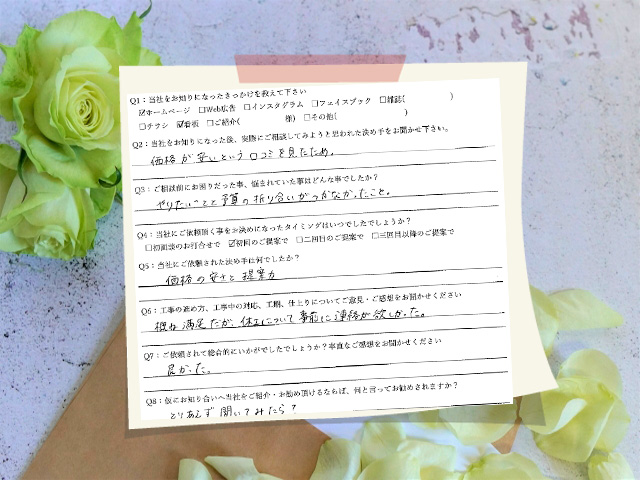 Q1：当社をお知りになったきっかけを教えて下さい
☑ホームページ □Web広告 □インスタグラム □フェイスブック □雑誌( )
□チラシ ☑看板 □ご紹介( 様) □その他( )
Q2：当社をお知りになった後、実際にご相談してみようと思われた決め手をお聞かせ下さい。
価格が安いという口コミを見たため。
Q3：ご相談前にお困りだった事、悩まれていた事はどんな事でしたか？
やりたいことと予算の折り合いがつかなかったこと。
Q4：当社にご依頼頂く事をお決めになったタイミングはいつでしたでしょうか？
□初面談のお打合せで ☑初回のご提案で □二回目のご提案で □三回目以降のご提案で
Q5：当社にご依頼された決め手は何でしたか？
価格の安さと提案力
Q6：工事の進め方、工事中の対応、工期、仕上りについてご意見・ご感想をお聞かせください
概ね満足だが、休工について事前に連絡が欲しかった。
Q7：ご依頼されて総合的にいかがでしたでしょうか？率直なご感想をお聞かせください
良かった。
Q8：仮にお知り合いへ当社をご紹介・お勧め頂けるならば、何と言ってお勧めされますか？
とりあえず聞いてみたら？